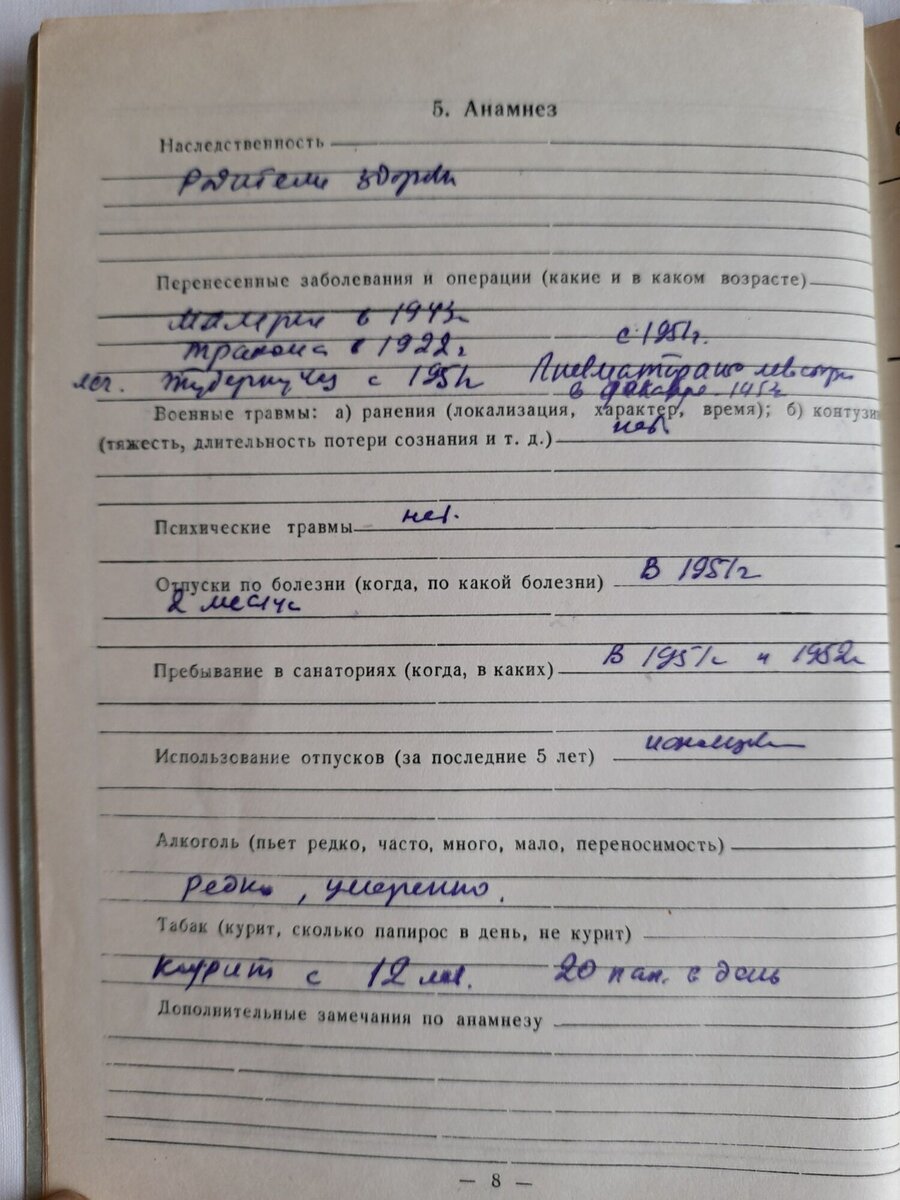 5. Анамнез
Наследственность
Родители здоровы
Перенесенные заболевания и операции (какие и в каком возрасте)
Малярия в 1943г
Трахома в 1922г с 1951г.
лег. Туберкулез с 1951г
в декабре
Военные травмы: а) ранения (локализация, характер, время); б) контузии
нет.
(тяжесть, длительность потери сознания и т. д.)
Психические травмы нет.
Отпуски по болезни (когда, по какой болезни) В 1951г
2 месяца
Пребывание в санаториях (когда, в каких) В 1951г и 1952г
Использование отпусков (за последние 5 лет)
Алкоголь (пьет редко, часто, много, мало, переносимость)
редко, умеренно.
Табак (курит, сколько папирос в день, не курит)
Курит с 12 лет. 20 пап. в день
Дополнительные замечания по анамнезу
— 8 —